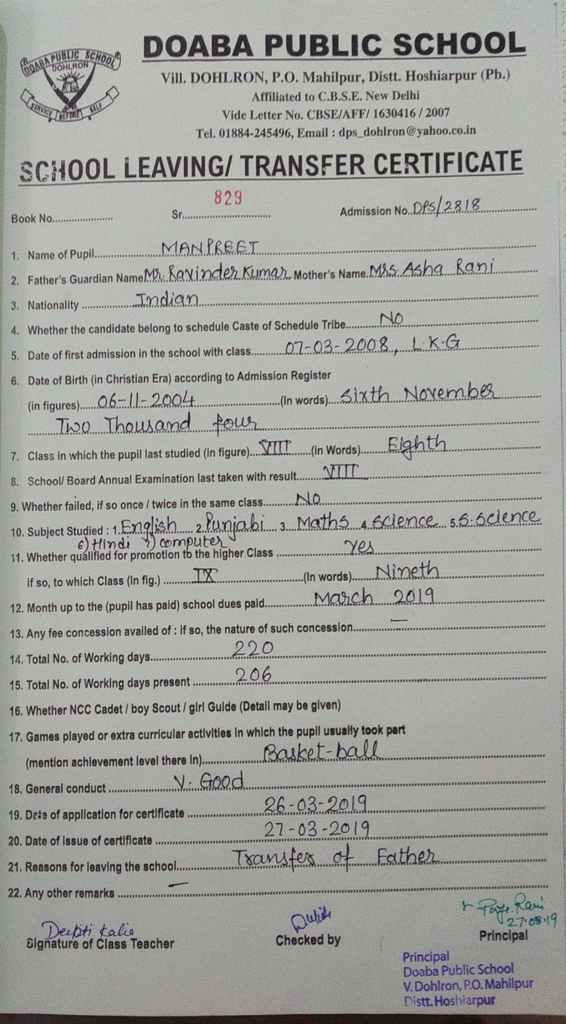 DOABA PUBLIC SCHOOL
DOHLRON
SERVICE BEFORE SELF
DOABA PUBLIC SCHOOL
Vill. DOHLRON, P.O. Mahilpur, Distt. Hoshiarpur (Pb.)
Affiliated to C.B.S.E. New Delhi
Vide Letter No. CBSE/AFF/ 1630416 / 2007
Tel. 01884-245496, Email : dps_dohlron@yahoo.co.in
SCHOOL LEAVING/ TRANSFER CERTIFICATE
Book No.................... Sr. 829 Admission No. DPS/2818
1. Name of Pupil. MANPREET
2. Father's Guardian Name Mr. Ravinder Kumar Mother's Name. Mrs. Asha Rani
3. Nationality Indian
4. Whether the candidate belong to schedule Caste of Schedule Tribe. No
5. Date of first admission in the school with class. 07-03-2008, L.K.G
6. Date of Birth (in Christian Era) according to Admission Register
(in figures). 06-11-2004 (In words). Sixth November
Two Thousand four
7. Class in which the pupil last studied (in figure). VIII (in Words). Eighth
8. School/ Board Annual Examination last taken with result. VIII
9. Whether failed, if so once / twice in the same class. No
10. Subject Studied : 1. English 2. Punjabi 3. Maths 4. Science 5. S. Science
6) Hindi 7) computer
11. Whether qualified for promotion to the higher Class Yes
if so, to which Class (in fig.) IX (In words). Nineth
12. Month up to the (pupil has paid) school dues paid. March 2019
13. Any fee concession availed of : if so, the nature of such concession. —
14. Total No. of Working days. 220
15. Total No. of Working days present 206
16. Whether NCC Cadet / boy Scout / girl Guide (Detail may be given)
17. Games played or extra curricular activities in which the pupil usually took part
(mention achievement level there in). Basket-ball
18. General conduct V. Good
19. Date of application for certificate 26-03-2019
20. Date of issue of certificate 27-03-2019
21. Reasons for leaving the school. Transfer of Father
22. Any other remarks —
Deepti Kalia
Signature of Class Teacher
Checked by
27-03-19
Principal
Principal
Doaba Public School
V. Dohlron, P.O. Mahilpur
Distt. Hoshiarpur